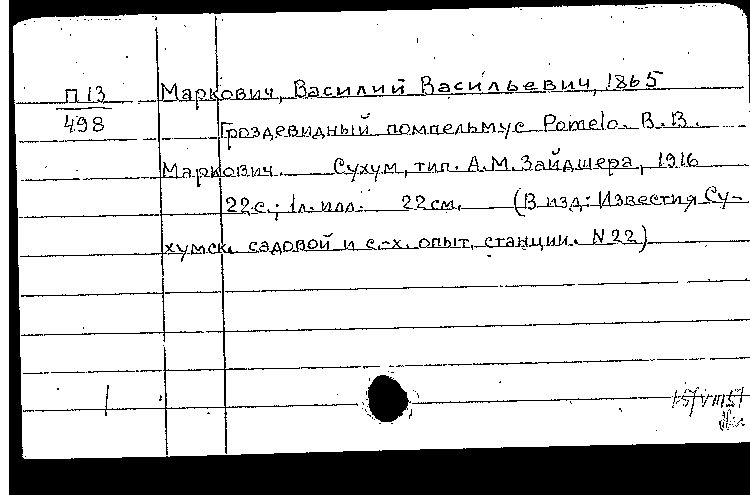 П13 Маркович, Василий Васильевич, 1865
498 Гроздевидный помпельмус Pomelo. В.В.
Маркович. Сухум, тип. А.М. Зайдшера, 1916
22с.; 1л. илл. 22см. (В изд: Известия Су-
хумск. садовой и с.-х. опыт. станции. N22)